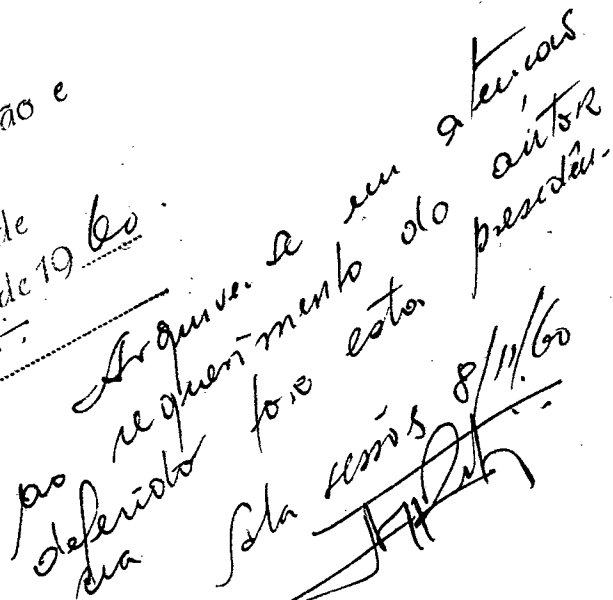 ão e
de
de 19 60.
Arquive-se em atenção
ao requerimento do autor
deferido por esta presidên-
cia
Sala sessões 8/11/60